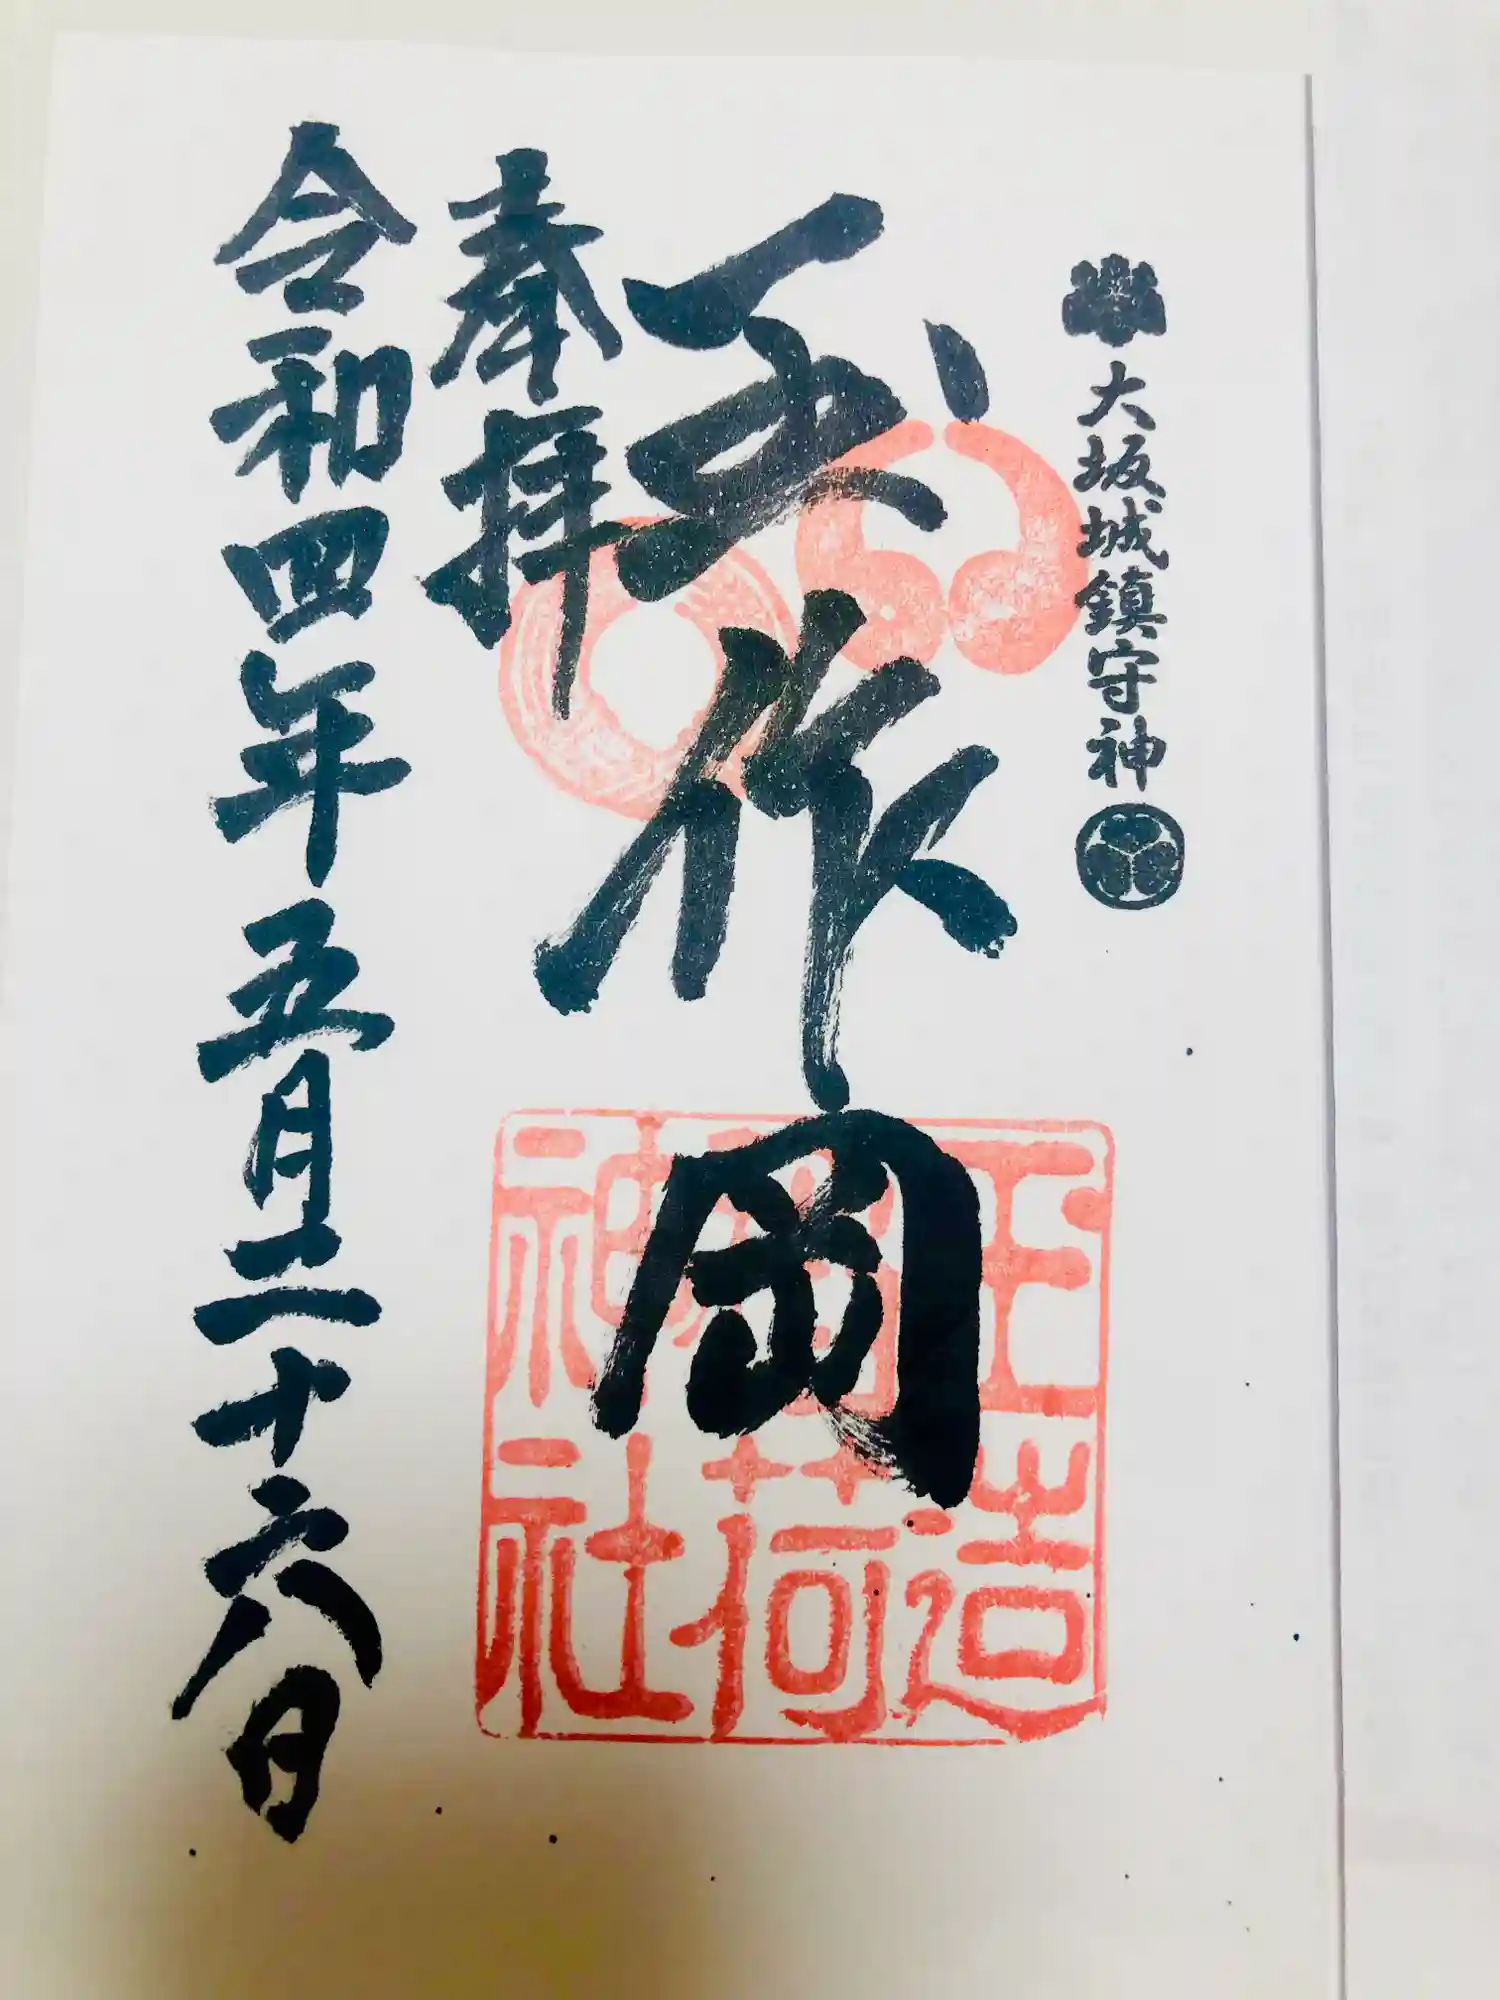 大坂城鎮守神
玉作岡
玉造
稲荷
神社
奉拝
令和四年五月二十六日